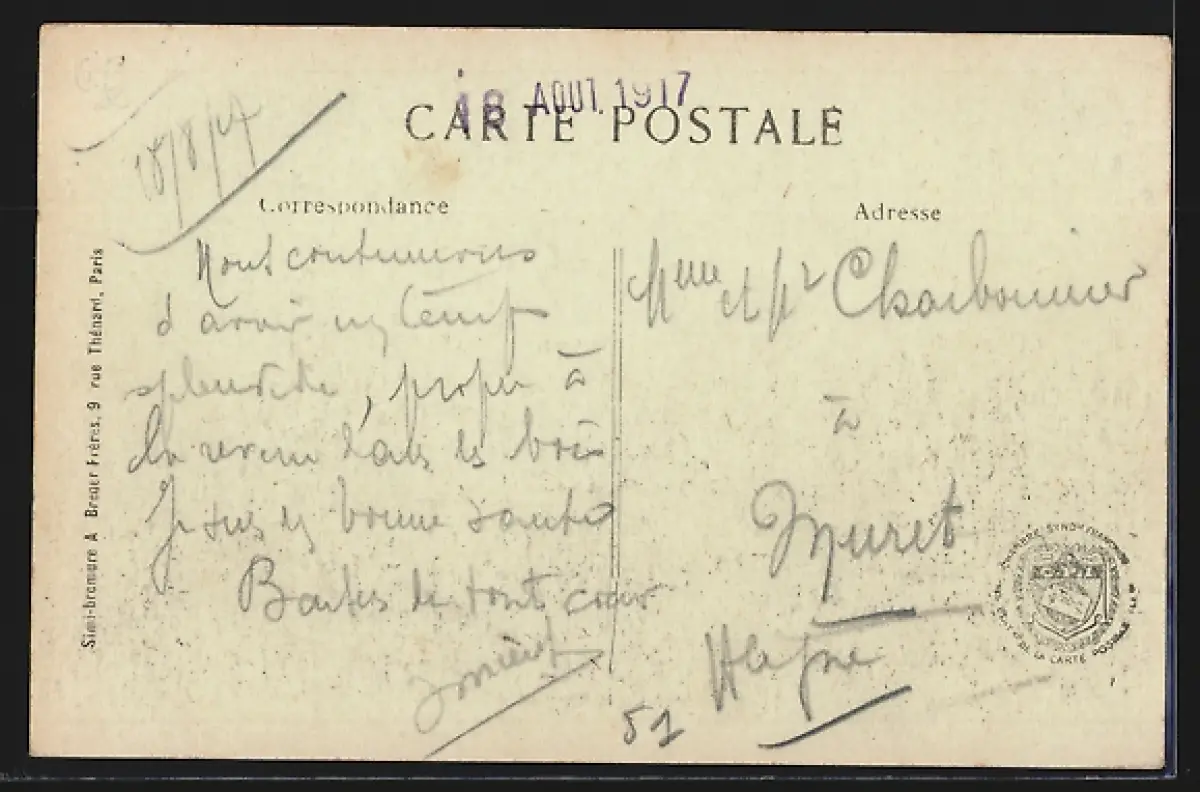 18 AOUT. 1917
CARTE POSTALE
18/8/17
Correspondance
Nous continuons
d'avoir un temps
splendide, propre à
la dans les bois
Je suis en bonne santé
Bontés de tout cœur
Adresse
Mme et Mr Charbonnier
à
Muret
Hte Gne
51
Simi-bromure A. Breger Frères, 9 rue Thénard, Paris
CHAMBRE SYNDle FRANCAISE
DE LA CARTE POSTALE